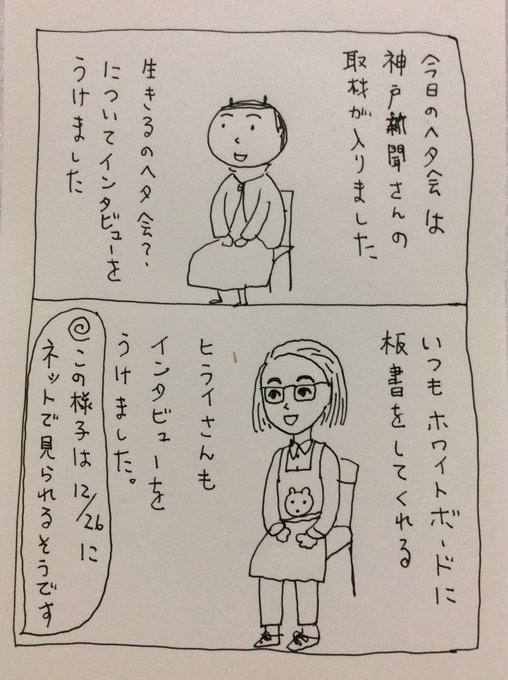 今日のヘタ会は
神戸新聞さんの
取材が入りました
生きるのヘタ会？
についてインタビューを
うけました
いつもホワイトボードに
板書をしてくれる
ヒライさんも
インタビューを
うけました。
◎この様子は12/26に
ネットで見られるそうです